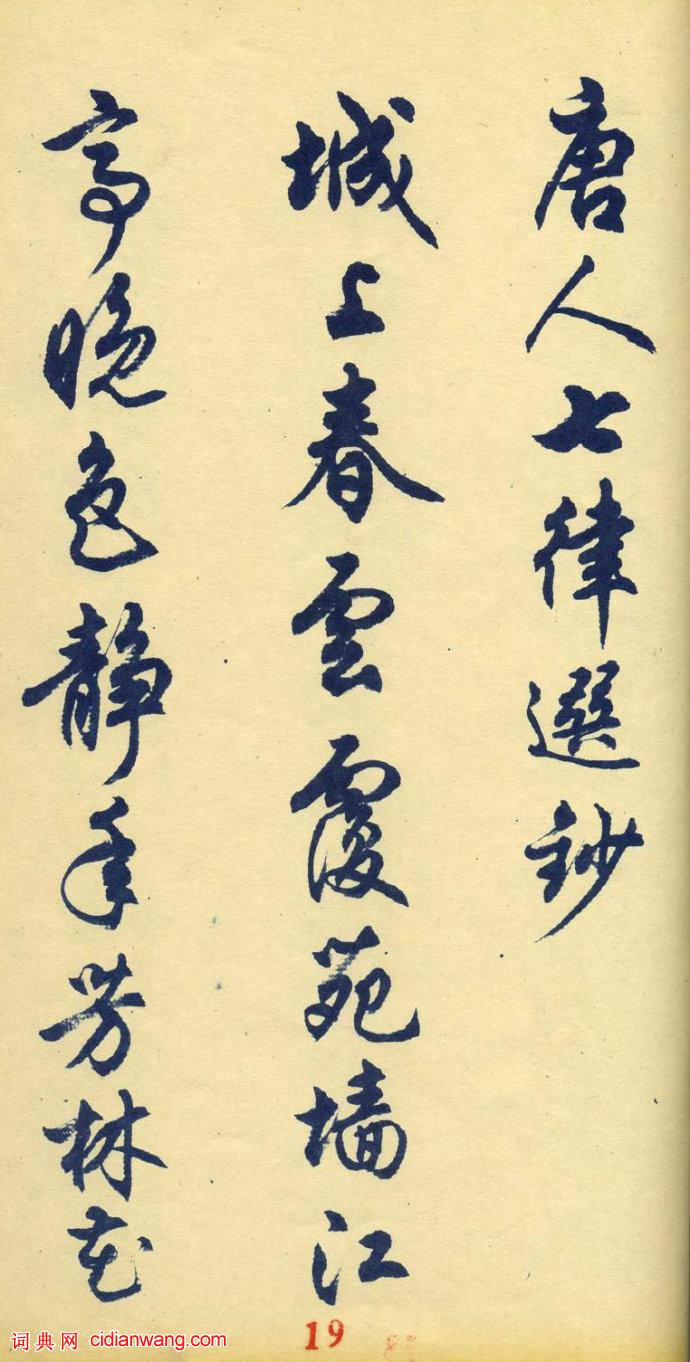 唐人七律選鈔
城上春雲覆苑墙江
亭晚色静年芳林花
19
词典网 cidianwang.com